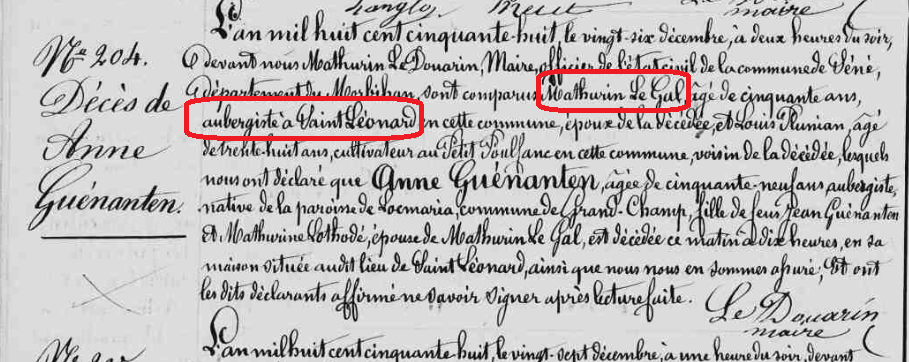 Langlo
maire
L'an mil huit cent cinquante-huit, le vingt-six décembre, à deux heures du soir,
devant nous Mathurin Le Douarin, Maire, officier de l'état civil de la commune de Séné,
département du Morbihan, sont comparus Mathurin Le Gal, âgé de cinquante ans,
aubergiste à Saint Léonard en cette commune, époux de la décédée, et Louis Plunian, âgé
de trente-huit ans, cultivateur au Petit Poulfanc en cette commune, voisin de la décédée, lesquels
nous ont déclaré que Anne Guénanten, âgée de cinquante-neuf ans aubergiste,
native de la paroisse de Locmaria, commune de Grand-Champ, fille de feus Jean Guénanten
et Mathurine Lothodé, épouse de Mathurin Le Gal, est décédée ce matin à dix heures, en sa
maison située audit lieu de Saint Léonard, ainsi que nous nous en sommes assuré; Et ont
les dits déclarants affirmé ne savoir signer après lecture faite.
Le Douarin
maire
Nº 204.
Décès de
Anne
Guénanten.
L'an mil huit cent cinquante-huit, le vingt-sept décembre, à une heure du soir, devant